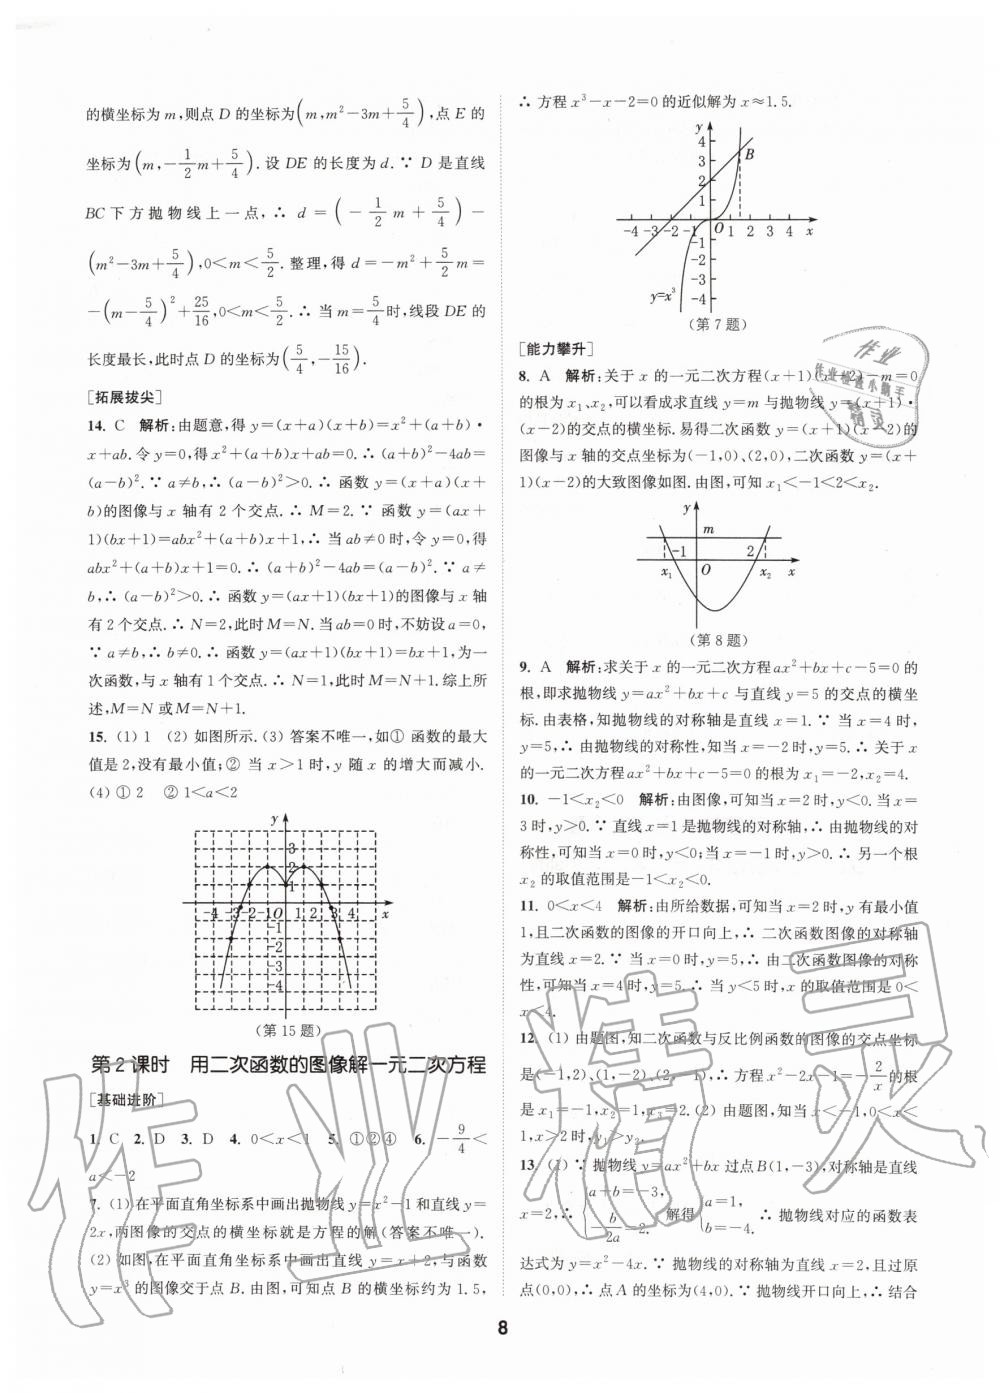 的横坐标为 m,则点 D 的坐标为(m,m²-3m+5/4),点 E 的
坐标为(m,-1/2m+5/4).设 DE 的长度为 d.∵ D 是直线
BC 下方抛物线上一点,∴ d=(-1/2m+5/4)-
(m²-3m+5/4),0<m<5/2.整理,得 d=-m²+5/2m=
-(m-5/4)²+25/16,0<m<5/2.∴ 当 m=5/4时,线段 DE 的
长度最长,此时点 D 的坐标为(5/4,-15/16).
[拓展拔尖]
14. C 解析:由题意,得 y=(x+a)(x+b)=x²+(a+b)·
x+ab.令 y=0,得 x²+(a+b)x+ab=0.∴ (a+b)²-4ab=
(a-b)².∵ a≠b,∴ (a-b)²>0.∴ 函数 y=(x+a)(x+
b)的图像与 x 轴有 2 个交点.∴ M=2.∵ 函数 y=(ax+
1)(bx+1)=abx²+(a+b)x+1,∴ 当 ab≠0 时,令 y=0,得
abx²+(a+b)x+1=0.∴ (a+b)²-4ab=(a-b)².∵ a≠
b,∴ (a-b)²>0.∴ 函数 y=(ax+1)(bx+1)的图像与 x 轴
有 2 个交点.∴ N=2,此时 M=N.当ab=0 时,不妨设 a=0,
∵ a≠b,∴ b≠0.∴ 函数 y=(ax+1)(bx+1)=bx+1,为一
次函数,与 x 轴有 1 个交点.∴ N=1,此时 M=N+1.综上所
述,M=N 或 M=N+1.
15. (1) 1 (2) 如图所示.(3) 答案不唯一,如① 函数的最大
值是 2,没有最小值;② 当 x>1 时,y 随 x 的增大而减小.
(4) ① 2 ② 1<a<2
y
3
2
1
-4 -3 -2 -1 O 1 2 3 4 x
-1
-2
-3
-4
(第 15 题)
第 2 课时 用二次函数的图像解一元二次方程
[基础进阶]
1. C 2. D 3. D 4. 0<x<1 5. ①②④ 6. -9/4<
a<-2
7. (1) 在平面直角坐标系中画出抛物线 y=x²-1 和直线 y=
2x,两图像的交点的横坐标就是方程的解(答案不唯一).
(2) 如图,在平面直角坐标系中画出直线 y=x+2,与函数
y=x³ 的图像交于点 B.由图,可知点 B 的横坐标约为 1.5,
∴ 方程 x³-x-2=0 的近似解为 x≈1.5.
y
4
3
2
1
B
-4 -3 -2 -1 O 1 2 3 4 x
-1
-2
-3
-4
y=x³
(第 7 题)
[能力攀升]
8. A 解析:关于 x 的一元二次方程(x+1)(x-2)-m=0
的根为 x₁、x₂,可以看成求直线 y=m 与抛物线 y=(x+1)·
(x-2)的交点的横坐标.易得二次函数 y=(x+1)(x-2)的
图像与 x 轴的交点坐标为(-1,0)、(2,0),二次函数 y=(x+
1)(x-2)的大致图像如图.由图,可知 x₁<-1<2<x₂.
y
m
-1 2
x₁ O x₂ x
(第 8 题)
9. A 解析:求关于 x 的一元二次方程 ax²+bx+c-5=0 的
根,即求抛物线 y=ax²+bx+c 与直线 y=5 的交点的横坐
标.由表格,知抛物线的对称轴是直线 x=1.∵ 当 x=4 时,
y=5,∴ 由抛物线的对称性,知当 x=-2 时,y=5.∴ 关于 x
的一元二次方程 ax²+bx+c-5=0 的根为 x₁=-2,x₂=4.
10. -1<x₂<0 解析:由图像,可知当 x=2 时,y<0.当 x=
3 时,y>0.∵ 直线 x=1 是抛物线的对称轴,∴ 由抛物线的对
称性,可知当 x=0 时,y<0;当 x=-1 时,y>0.∴ 另一个根
x₂ 的取值范围是-1<x₂<0.
11. 0<x<4 解析:由所给数据,可知当 x=2 时,y 有最小值
1,且二次函数的图像的开口向上,∴ 二次函数图像的对称轴
为直线 x=2.∵ 当 x=0 时,y=5,∴ 由二次函数图像的对称
性,可知当 x=4 时,y=5.∴ 当 y<5 时,x 的取值范围是 0<
x<4.
12. (1) 由题图,知二次函数与反比例函数的图像的交点坐标
是(-1,2)、(1,-2)、(2,-1),∴ 方程 x²-2x-1=-2/x的根
是 x₁=-1,x₂=1,x₃=2.(2) 由题图,知当 x<-1,0<x<
1,x>2 时,y₁>y₂.
13. (1) ∵ 抛物线 y=ax²+bx 过点 B(1,-3),对称轴是直线
x=2,∴ {a+b=-3, -b/2a=2. 解得{a=1, b=-4. ∴ 抛物线对应的函数表
达式为 y=x²-4x.∵ 抛物线的对称轴为直线 x=2,且过原
点(0,0),∴ 点 A 的坐标为(4,0).∵ 抛物线开口向上,∴ 结合
8
作业精灵